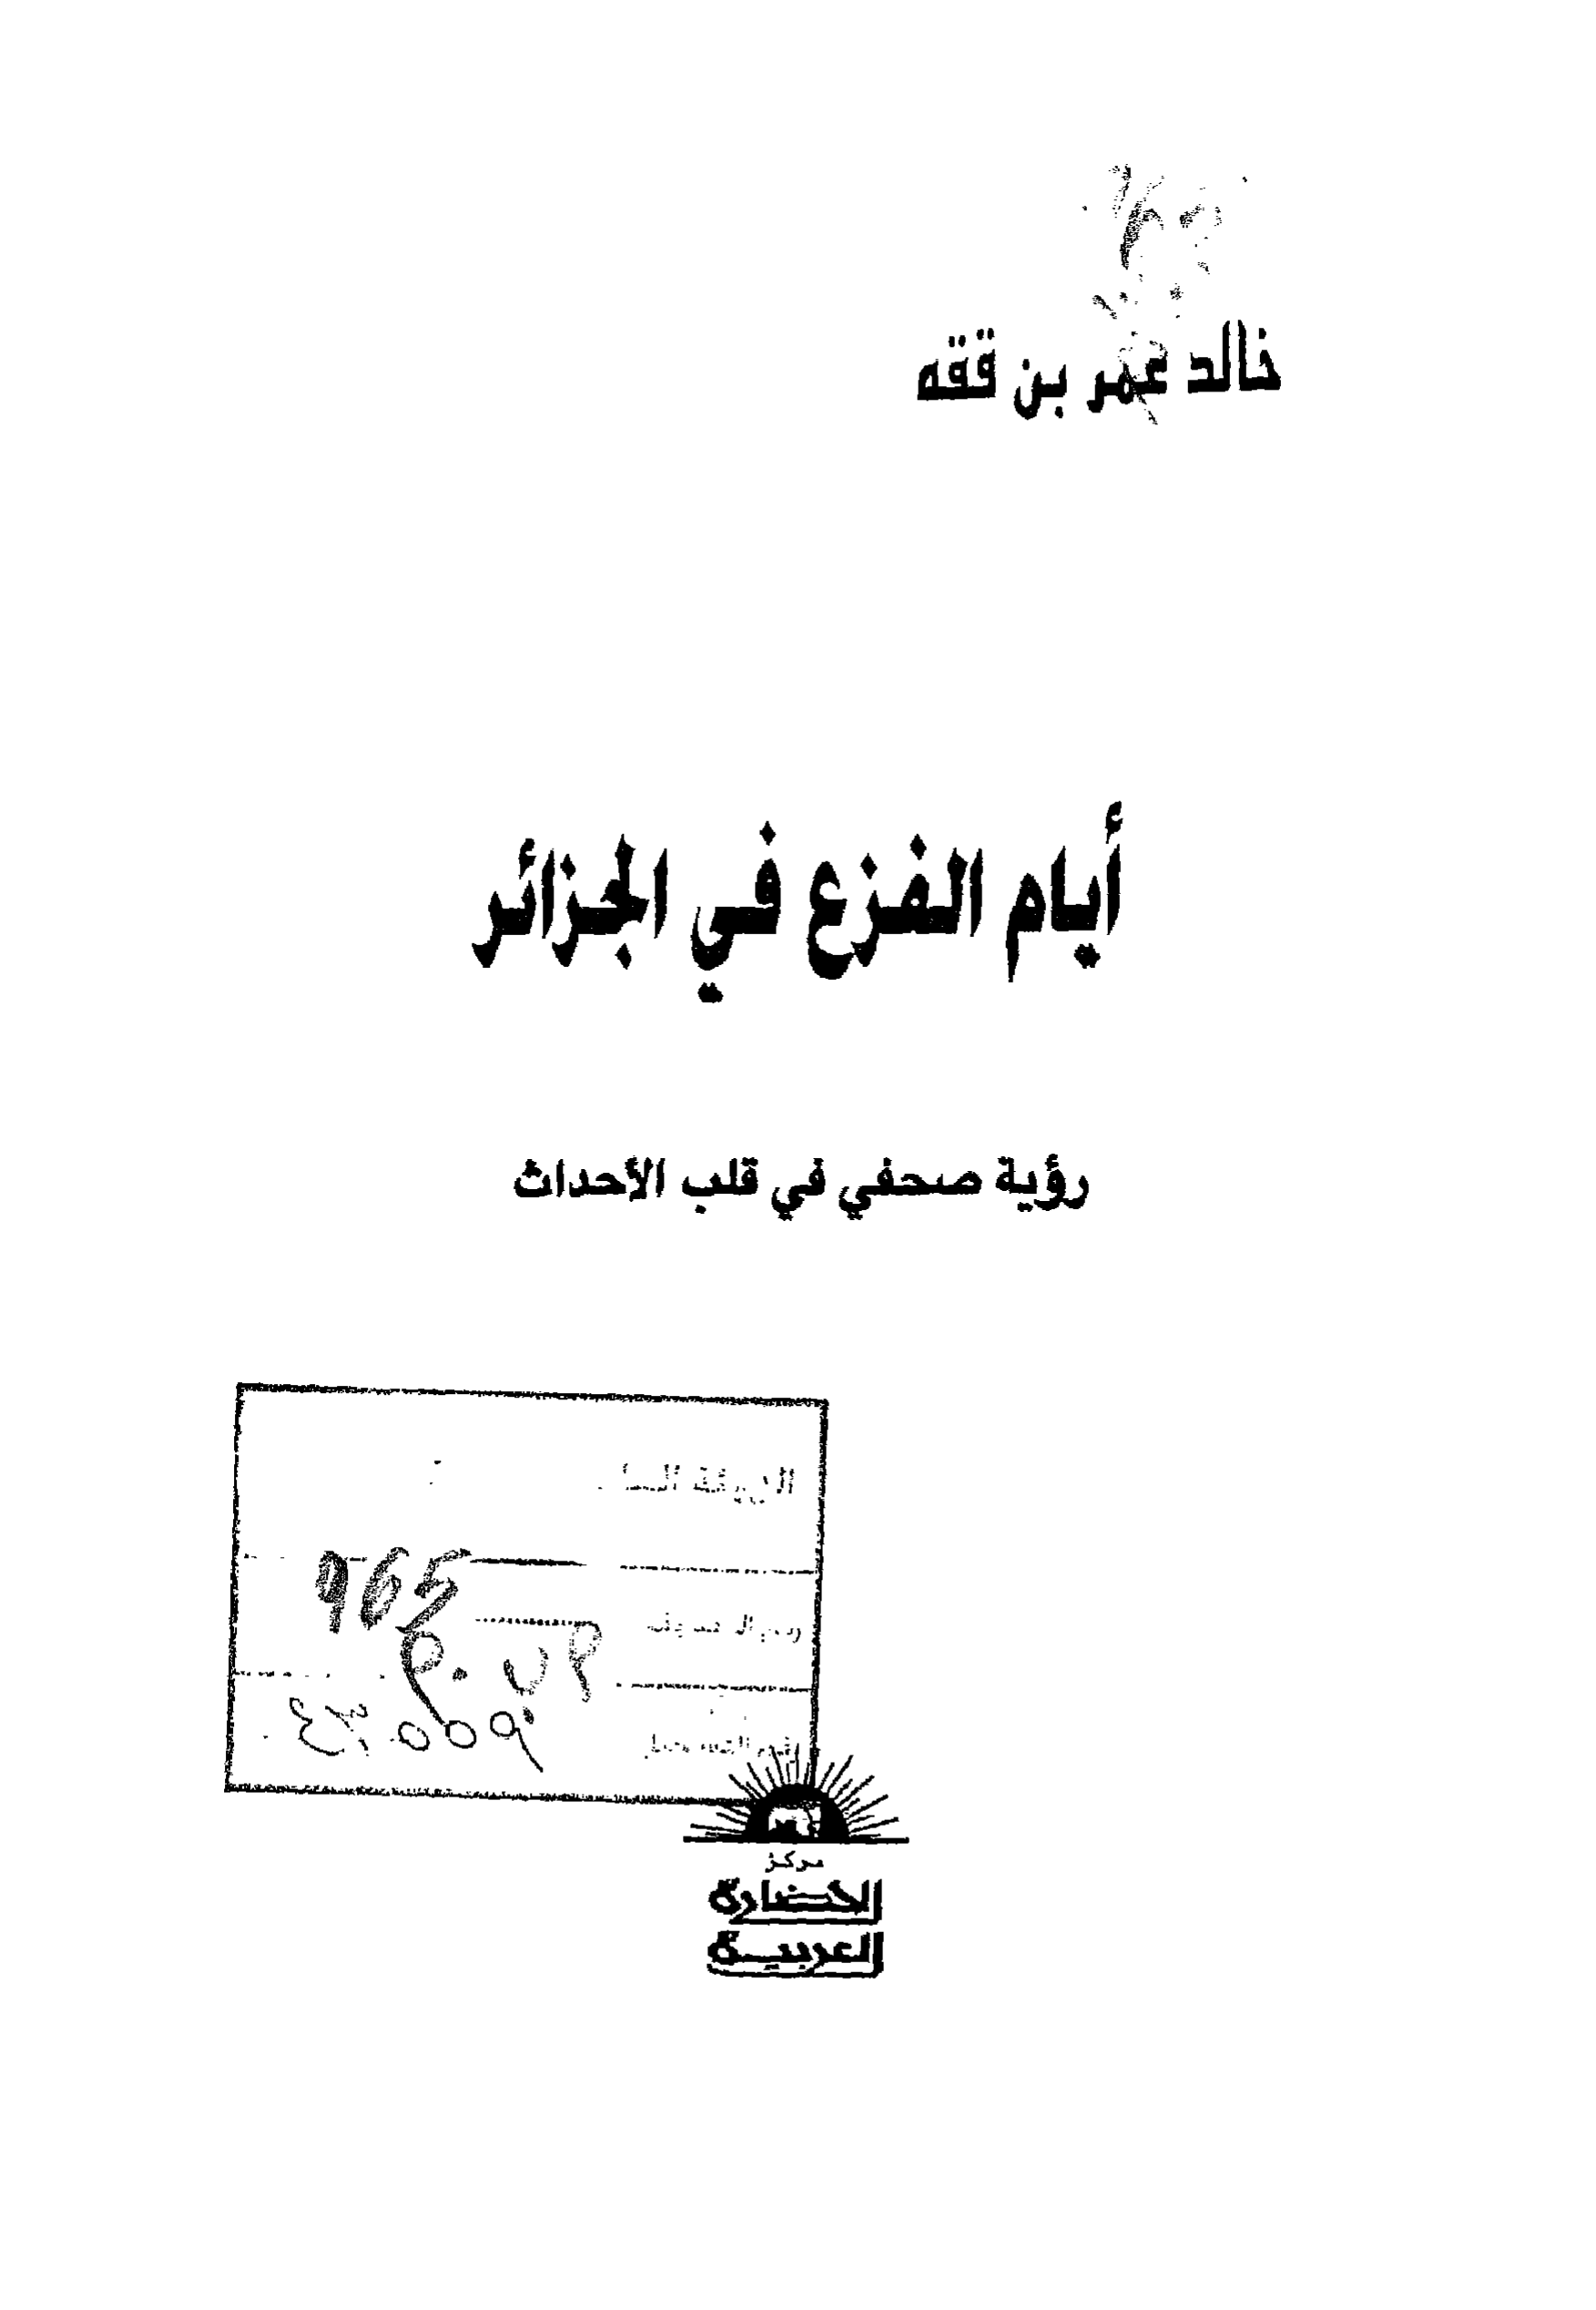 خالد عمر بن ققه
أيام الفزع في الجزائر
رؤية صحفي في قلب الأحداث
965
مركز
الحضارة
العربية